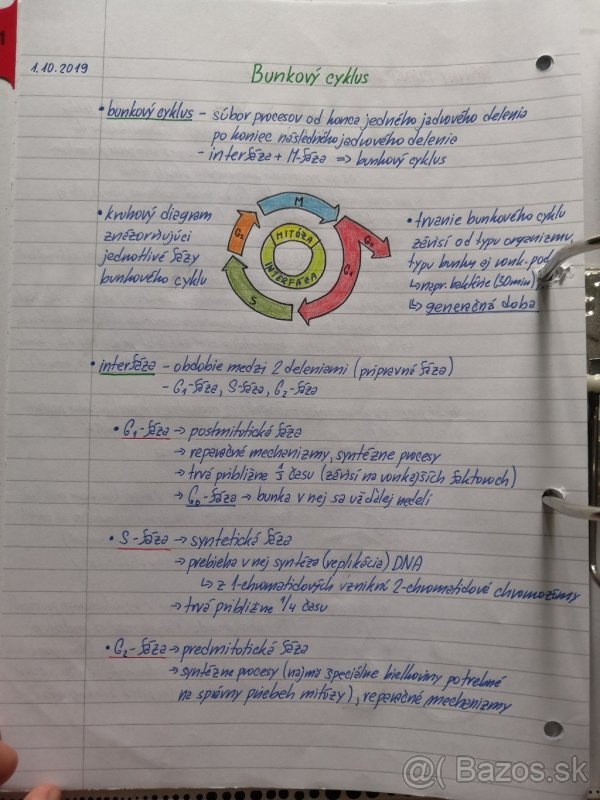 1.10.2019
Bunkový cyklus
• bunkový cyklus - súbor procesov od konca jedného jadrového delenia
po koniec následného jadrového delenia
- interfáza + M-fáza => bunkový cyklus
• kruhový diagram
znázorňujúci
jednotlivé fázy
bunkového cyklu
M
G₀
G₁
S
G₂
MITÓZA
INTERFÁZA
• trvanie bunkového cyklu
závisí od typu organizmu,
typu bunky aj vonk. pod
↳ napr. baktérie (30min)
↳ generačná doba
• interfáza - obdobie medzi 2 deleniami (prípravná fáza)
- G₁-fáza, S-fáza, G₂-fáza
• G₁-fáza → postmitotická fáza
→ reparačné mechanizmy, syntézne procesy
→ trvá približne 1/3 času (závisí na vonkajších faktoroch)
→ G₀-fáza → bunka v nej sa už ďalej nedelí
• S-fáza → syntetická fáza
→ prebieha v nej syntéza (replikácia) DNA
↳ z 1-chromatidových vznikní 2-chromatidové chromozómy
→ trvá približne 1/4 času
• G₂-fáza → predmitotická fáza
→ syntézne procesy (najmä špeciálne bielkoviny potrebné
na správny priebeh mitózy), reparačné mechanizmy
@( Bazos.sk